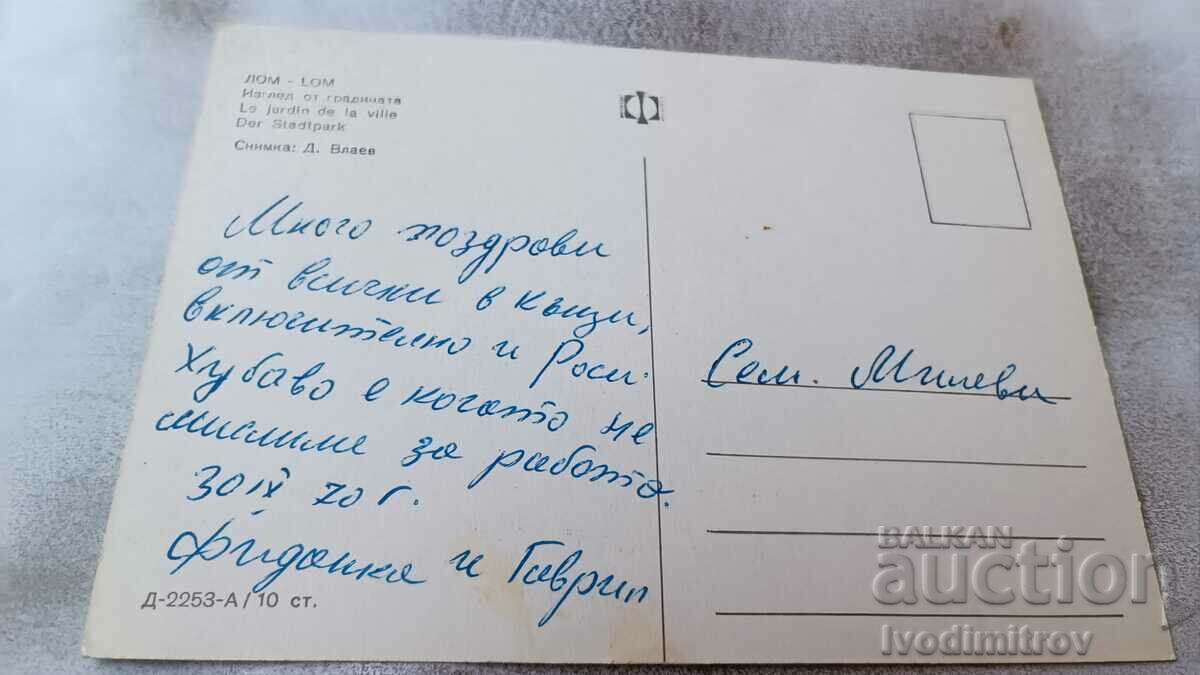 ЛОМ - LOM
Изглед от градината
Le jardin de la ville
Der Stadtpark
Снимка: Д. Влаев
Много поздрави
от всички в къщи,
включително и Роси.
Хубаво е когато не
мислиме за работа.
30 IX 70 г.
Фиданка и Гаврил
Д-2253-А/10 ст.
Сем. Милеви
BALKAN
auction
Ivodimitrov